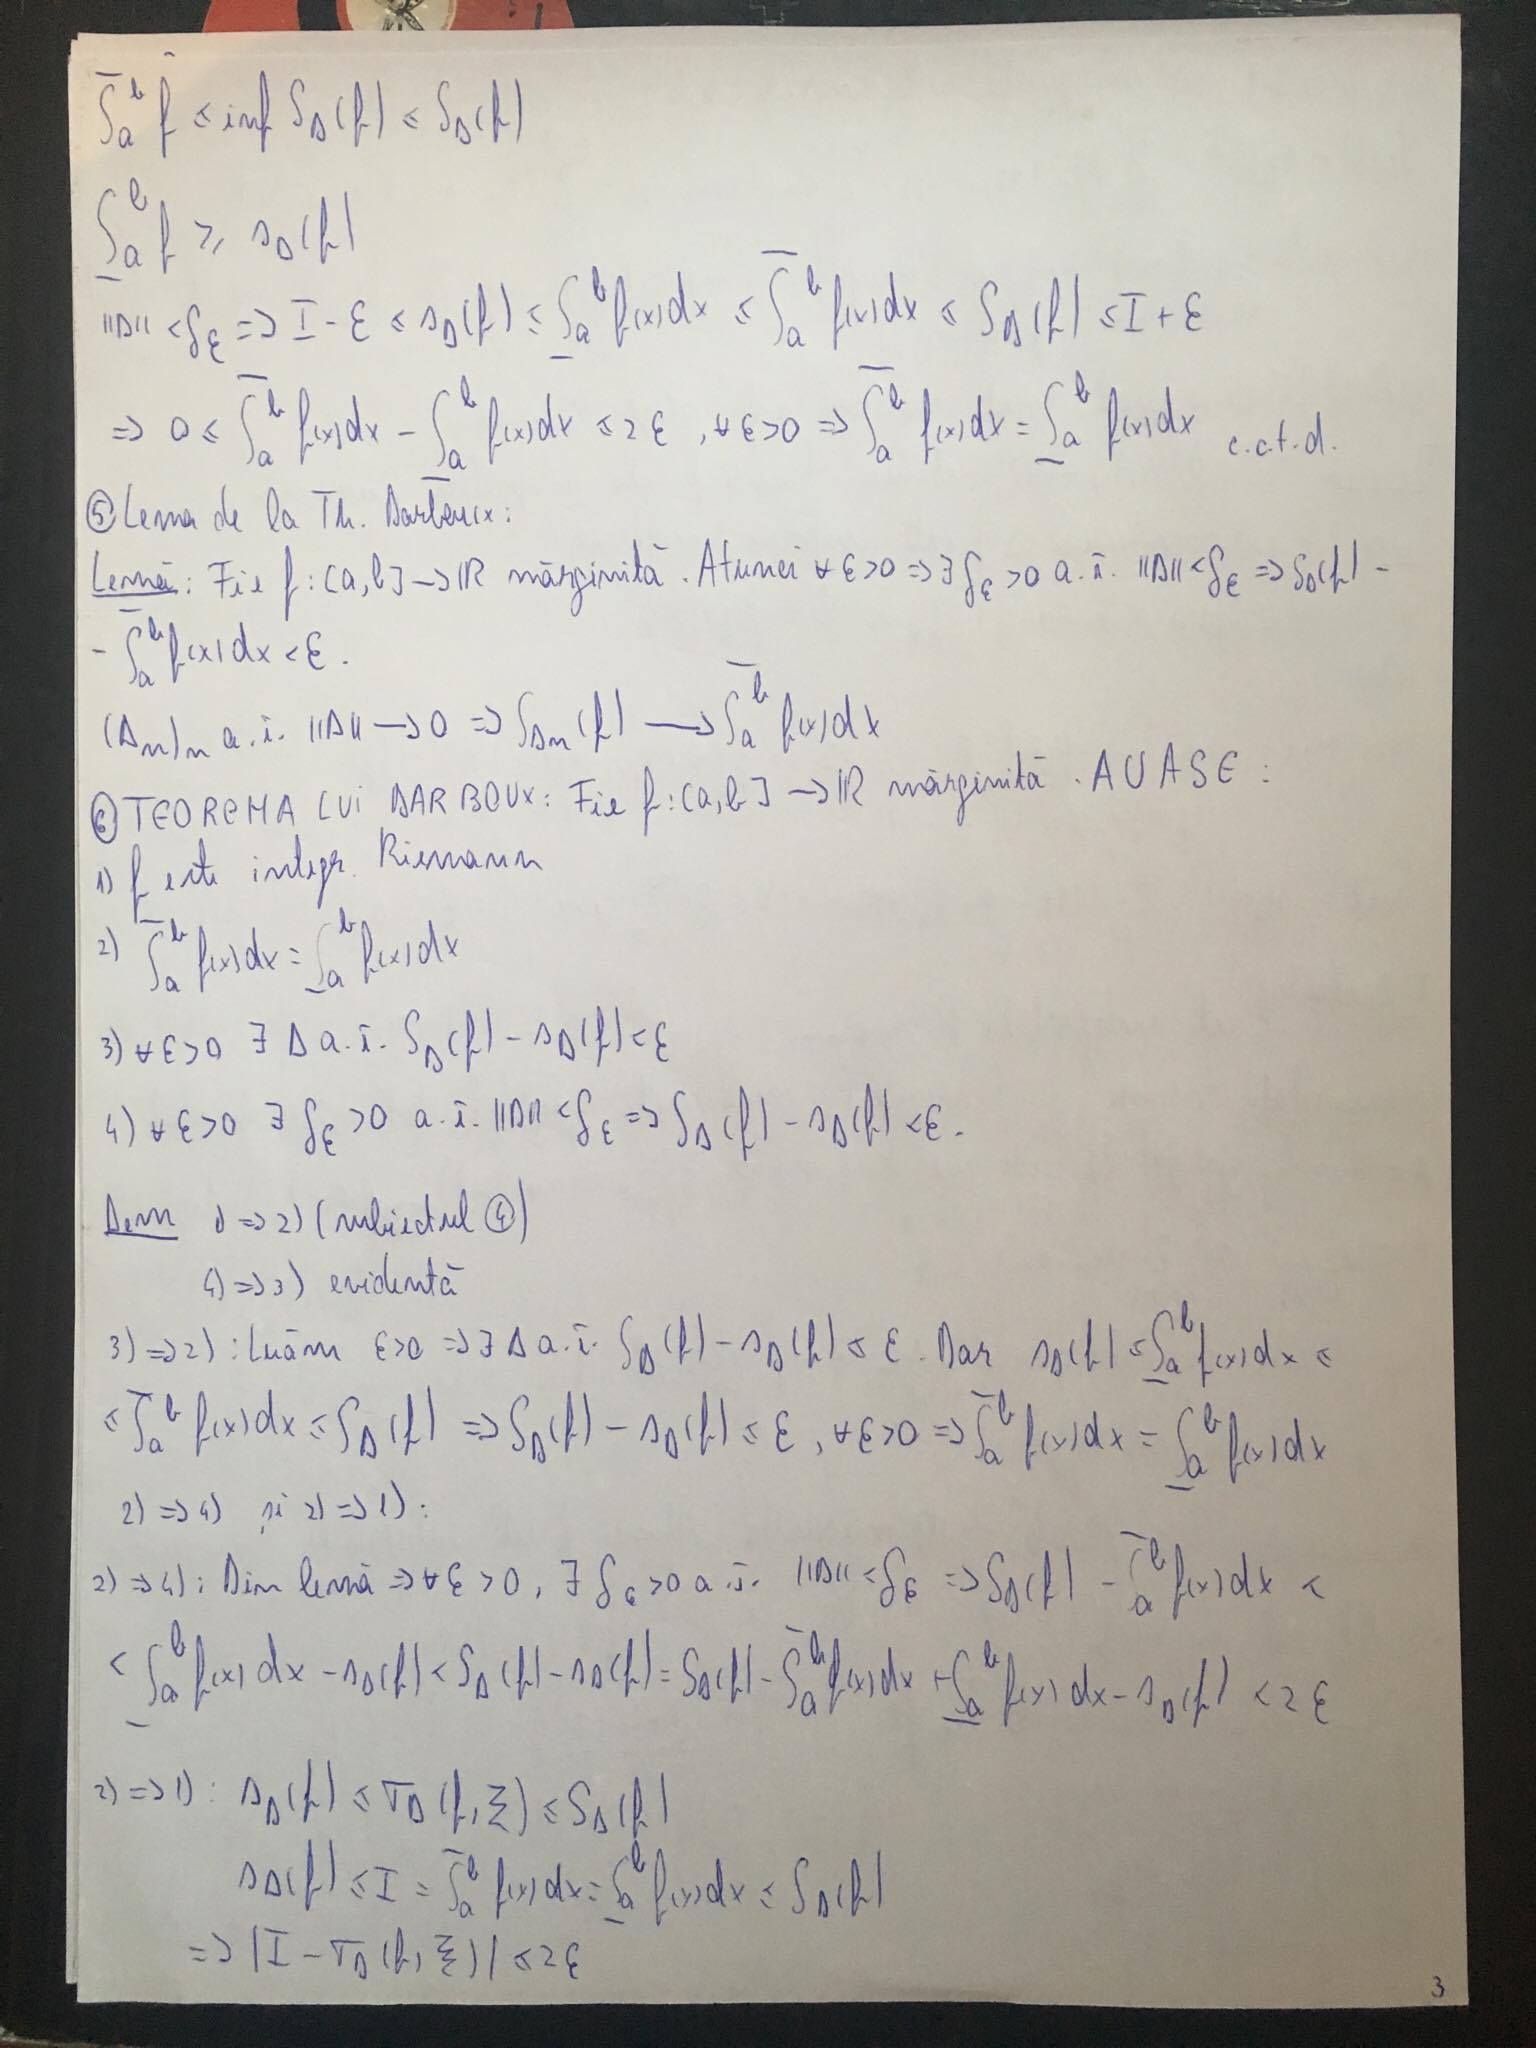 ∫̄ₐᵇ f ≤ inf S_Δ(f) ≤ S_Δ(f)
∫̲ₐᵇ f ≥ s_Δ(f)
||Δ|| < δ_ε => I - ε ≤ s_Δ(f) ≤ ∫̲ₐᵇ f(x)dx ≤ ∫̄ₐᵇ f(x)dx ≤ S_Δ(f) ≤ I + ε
=> 0 ≤ ∫̄ₐᵇ f(x)dx - ∫̲ₐᵇ f(x)dx ≤ 2ε, ∀ε>0 => ∫̄ₐᵇ f(x)dx = ∫̲ₐᵇ f(x)dx c.c.t.d.
⑤ Lema de la Th. Darboux:
Lemă: Fie f:[a,b] → ℝ mărginită. Atunci ∀ε>0 => ∃ δ_ε >0 a.î. ||Δ|| < δ_ε => S_Δ(f) -
- ∫̄ₐᵇ f(x)dx < ε.
(Δn)n a.î. ||Δ|| → 0 => S_Δn(f) → ∫̄ₐᵇ f(x)dx
⑥ TEOREMA LUI DARBOUX: Fie f:[a,b] → ℝ mărginită. AUASE:
1) f este integr. Riemann
2) ∫̄ₐᵇ f(x)dx = ∫̲ₐᵇ f(x)dx
3) ∀ε>0 ∃ Δ a.î. S_Δ(f) - s_Δ(f) < ε
4) ∀ε>0 ∃ δ_ε >0 a.î. ||Δ|| < δ_ε => S_Δ(f) - s_Δ(f) < ε.
Dem 1) => 2) (subiectul ④)
4) => 3) evidentă
3) => 2): Luăm ε>0 => ∃ Δ a.î. S_Δ(f) - s_Δ(f) ≤ ε. Dar s_Δ(f) ≤ ∫̲ₐᵇ f(x)dx ≤
≤ ∫̄ₐᵇ f(x)dx ≤ S_Δ(f) => S_Δ(f) - s_Δ(f) ≤ ε, ∀ε>0 => ∫̄ₐᵇ f(x)dx = ∫̲ₐᵇ f(x)dx
2) => 4) și 2) => 1):
2) => 4): Din lemă => ∀ε>0, ∃ δ_ε >0 a.î. ||Δ|| < δ_ε => S_Δ(f) - ∫̄ₐᵇ f(x)dx <
< ∫̲ₐᵇ f(x)dx - s_Δ(f) < S_Δ(f) - s_Δ(f) = S_Δ(f) - ∫̄ₐᵇ f(x)dx + ∫̲ₐᵇ f(x)dx - s_Δ(f) < 2ε
2) => 1): s_Δ(f) ≤ σ_Δ(f, ξ) ≤ S_Δ(f)
s_Δ(f) ≤ I = ∫̄ₐᵇ f(x)dx = ∫̲ₐᵇ f(x)dx ≤ S_Δ(f)
=> |I - σ_Δ(f, ξ)| ≤ 2ε
3